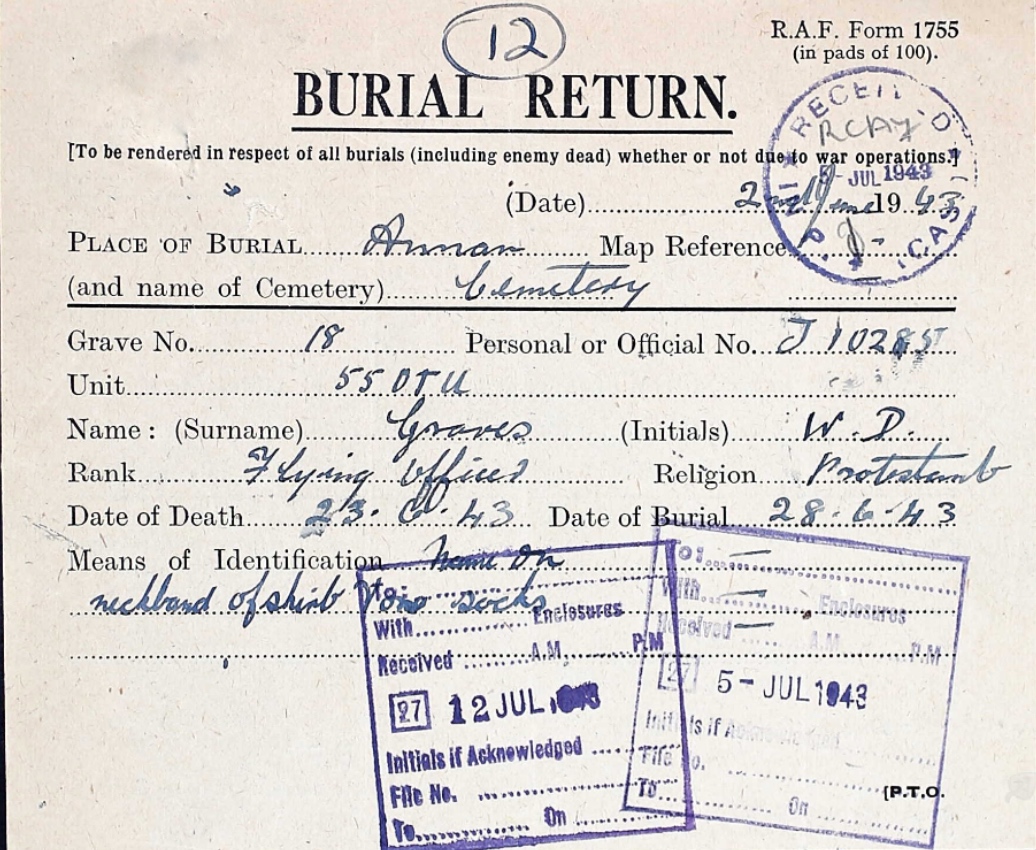 12
R.A.F. Form 1755
(in pads of 100).
BURIAL RETURN.
[To be rendered in respect of all burials (including enemy dead) whether or not due to war operations.]
RECEIV'D
RCAF
5 - JUL 1943
P. (CAS)
(Date) 2nd June 1943
PLACE OF BURIAL Annan Map Reference -
(and name of Cemetery) Cemetery
Grave No. 18 Personal or Official No. J 10285
Unit 55 OTU
Name: (Surname) Graves (Initials) W. D.
Rank Flying Officer Religion Protestant
Date of Death 23. 6. 43 Date of Burial 28-6-43
Means of Identification Name on
neckband of shirt socks
To
With Enclosures
Received A.M. P.M
27 12 JUL 1943
Initials if Acknowledged
File No.
To On
To: —
With — Enclosures
Received — A.M. P.M
27 5 - JUL 1943
Initials if Acknowledged
File No.
To On
[P.T.O.